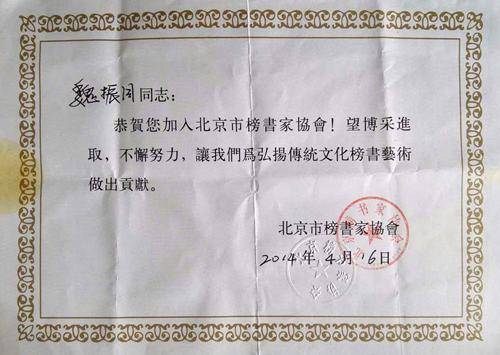 魏振同同志：
恭賀您加入北京市榜書家協會！望博采進
取，不懈努力，讓我們爲弘揚傳統文化榜書藝術
做出貢獻。
北京市榜書家協會
2014年4月16日